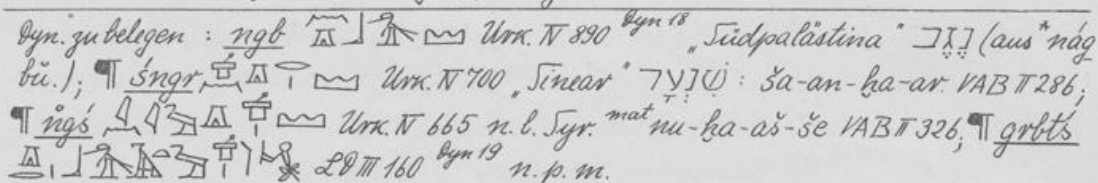 Dyn. zu belegen : ngb Urk. IV 890 Dyn 18 „Südpalästina" נֶגֶב (aus *nág-
bŭ.); ¶ śngr, Urk. IV 700 „Sinear" שִׁנְעָר : ša-an-ḫa-ar. VAB II 286;
¶ ngś Urk. IV 665 n. l. Syr. mat nu-ḫa-aš-še VAB II 326; ¶ grbtś
LD III 160 Dyn 19 n. p. m.